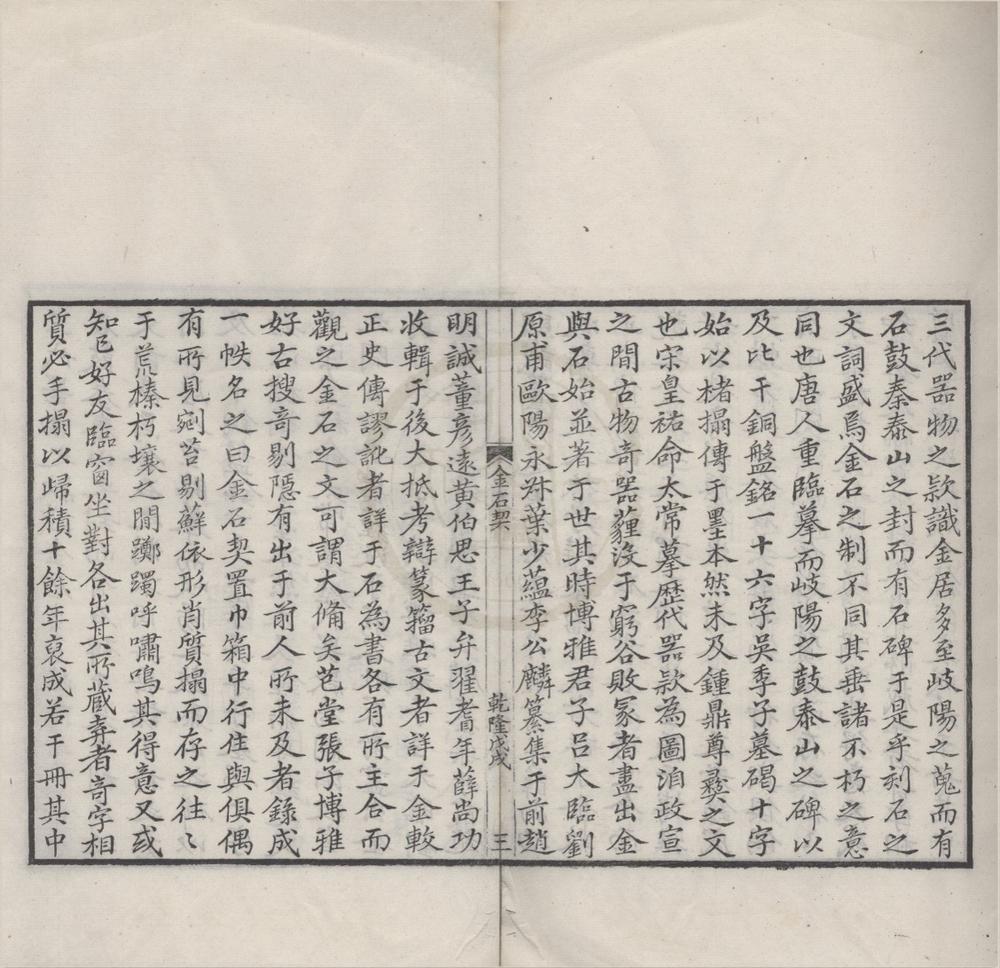 三代器物之款識金居多至岐陽之蒐而有
石鼓秦泰山之封而有石碑于是乎刻石之
文詞盛焉金石之制不同其垂諸不朽之意
同也唐人重臨摹而岐陽之鼓泰山之碑以
及比干銅盤銘一十六字吳季子墓碣十字
始以楮搨傳于墨本然未及鍾鼎尊彝之文
也宋皇祐命太常摹歷代器款為圖洎政宣
之間古物奇器薶沒于窮谷敗冢者盡出金
與石始並著于世其時博雅君子呂大臨劉
原甫歐陽永叔葉少蘊李公麟纂集于前趙
金石契
乾隆戊戌
三
明誠董彦遠黃伯思王子弁翟耆年薛尚功
收輯于後大抵考辯篆籀古文者詳于金較
正史傳謬訛者詳于石為書各有所主合而
觀之金石之文可謂大備矣芑堂張子博雅
好古搜奇剔隱有出于前人所未及者錄成
一帙名之曰金石契置巾箱中行住與俱偶
有所見剜苔剔蘚依形肖質搨而存之往〻
于荒榛朽壤之間躑躅呼嘯鳴其得意又或
知己好友臨窗坐對各出其所藏弆者奇字相
質必手搨以歸積十餘年裒成若干冊其中